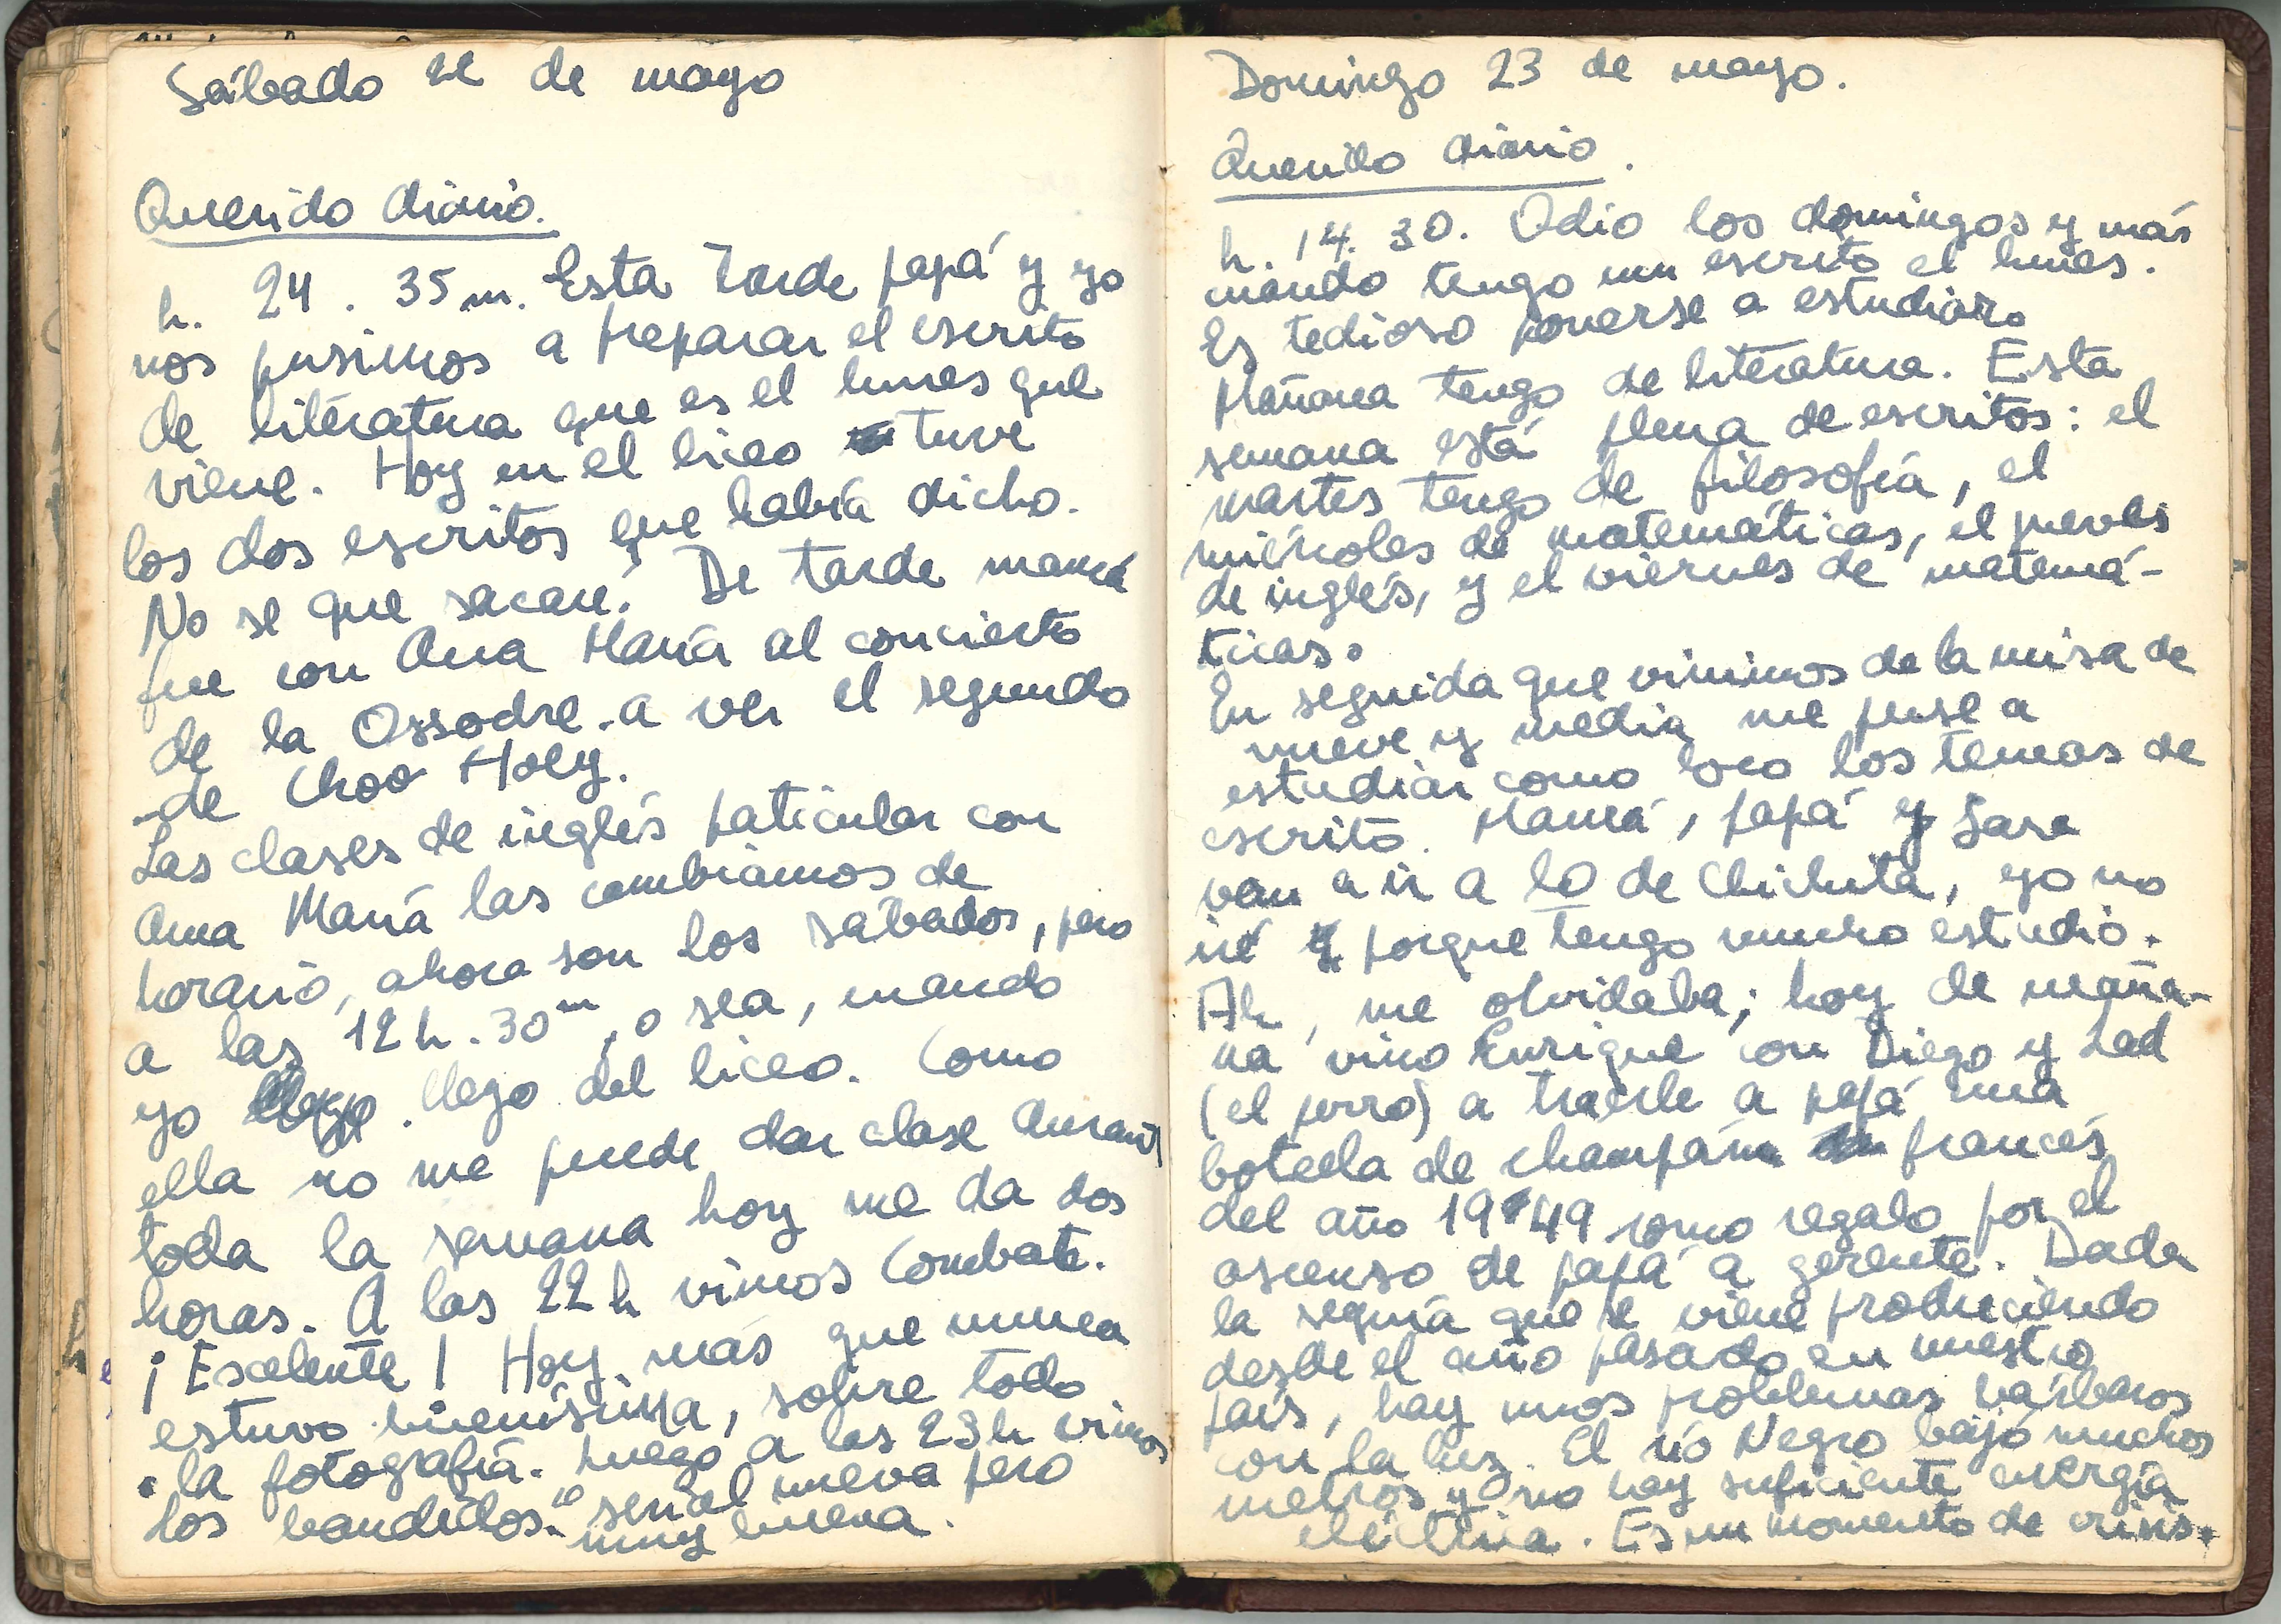 Sábado 22 de mayo
Querido diario.
h. 24. 35 m. Esta tarde papá y yo
nos pusimos a preparar el escrito
de literatura que es el lunes que
viene. Hoy en el liceo tuve
los dos escritos que había dicho.
No se que sacaré. De tarde mamá
fue con Ana María al concierto
de la Ossodre. a ver el segundo
de Choo Hoey.
Las clases de inglés paticular con
Ana María las cambiamos de
horario, ahora son los sábados, pero
a las 12 h. 30 m, o sea, cuando
yo llego del liceo. Como
ella no me puede dar clase durant
toda la semana hoy me da dos
horas. A las 22 h vimos Combate.
¡Escelente! Hoy más que nunca
estuvo buenísima, sobre todo
la fotografía. Luego a las 23 h vimos
Los bandidos." serial nueva pero
muy buena.
Domingo 23 de mayo.
Querido diario.
h. 14. 30. Odio los domingos y más
cuando tengo un escrito el lunes.
Es tedioso ponerse a estudiar.
Mañana tengo de literatura. Esta
semana está plena de escritos: el
martes tengo de filosofía, el
miércoles de matemáticas, el jueves
de inglés, y el viernes de matemá-
ticas.
En seguida que vinimos de la misa de
nueve y media me puse a
estudiar como loco los temas de
escrito. Mamá, papá y Sara
van a ir a lo de Chichita, yo no
iré porque tengo mucho estudio.
Ah, me olvidaba; hoy de maña-
na vino Enrique con Diego y Lad
(el perro) a traerle a papá una
botella de champán francés
del año 1949 como regalo por el
ascenso de papá a gerente. Dada
la sequía que se viene produciendo
desde el año pasado en nuestro
país, hay unos problemas bárbaros
con la luz. El río Negro bajó muchos
metros y no hay suficiente energía
eléctrica. Es un momento de crisis.